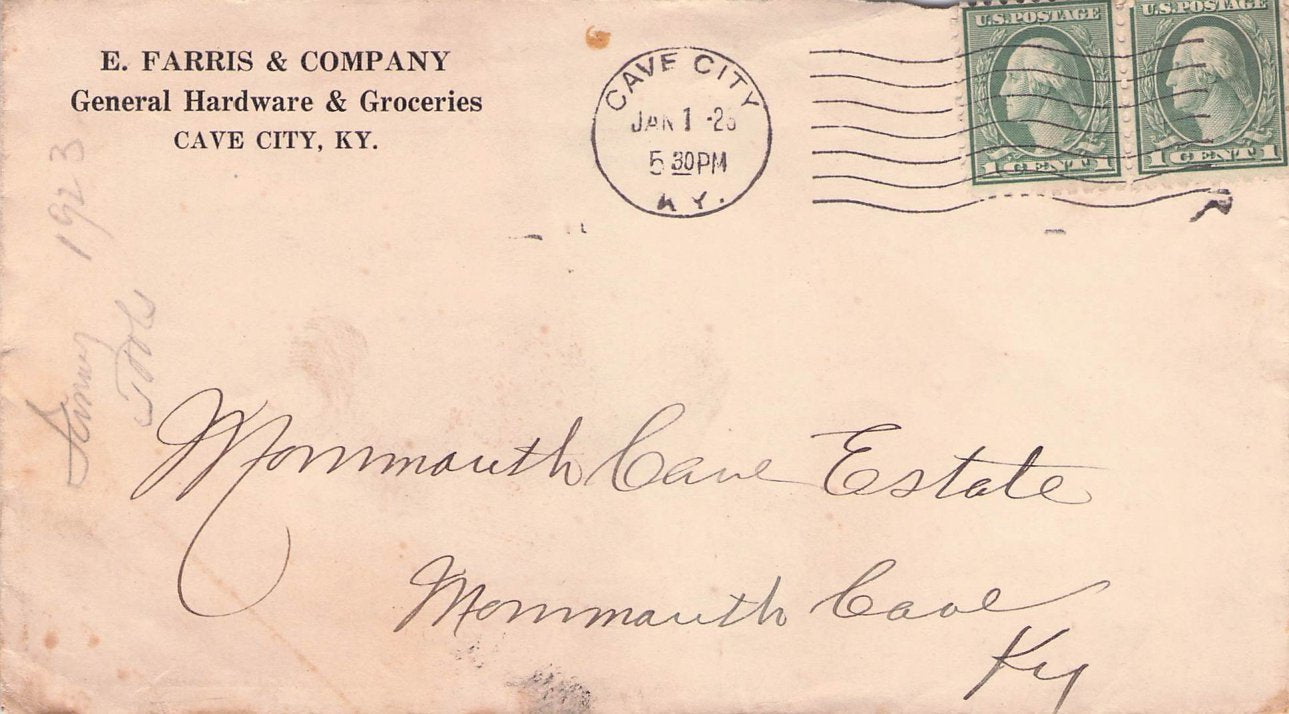 E. FARRIS & COMPANY
General Hardware & Groceries
CAVE CITY, KY.
CAVE CITY
JAN 1 -23
5 30 PM
KY.
U.S. POSTAGE
1 CENT 1
U.S. POSTAGE
1 CENT 1
1923
Mommouth Cave Estate
Mommouth Cave
Ky